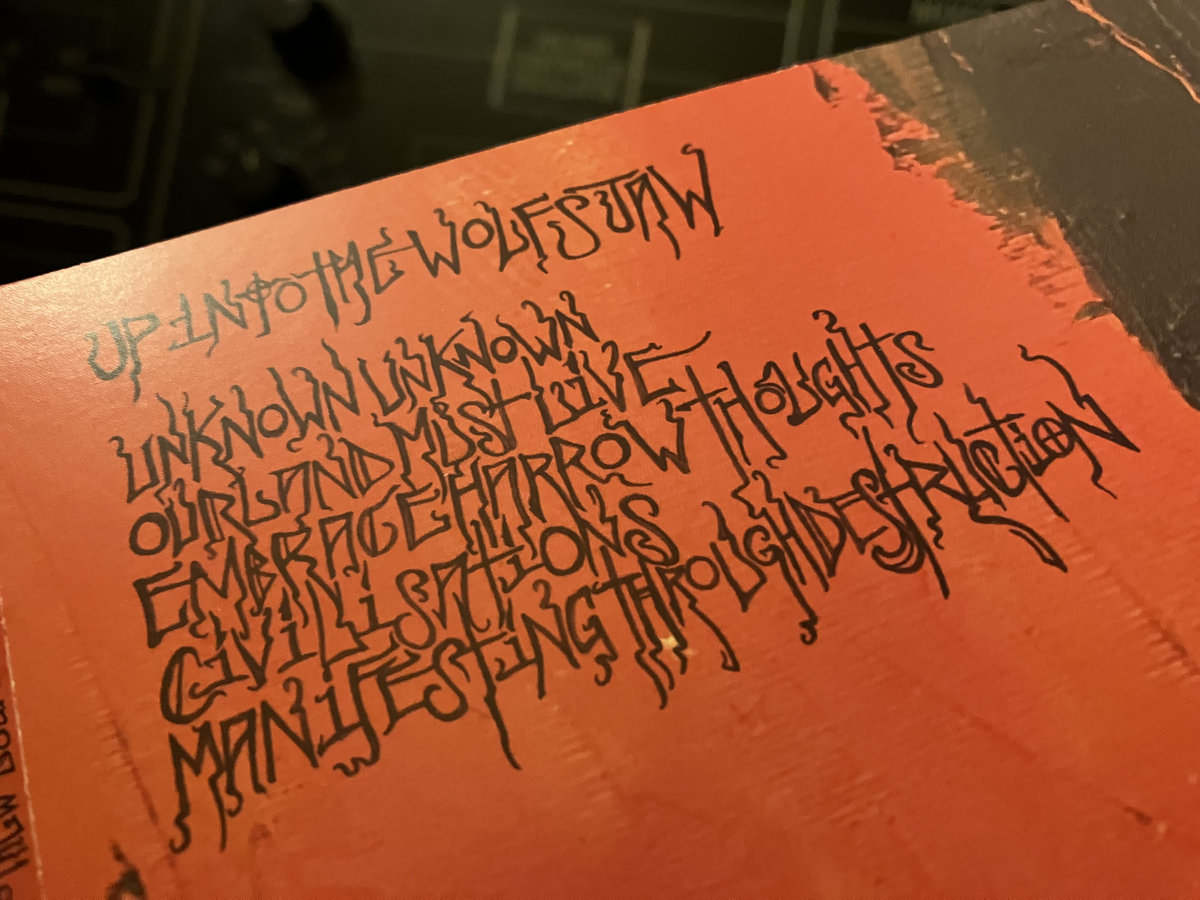 UP INTO THE WOLFS JAW
UNKNOWN UNKNOWN
OUR LAND MUST LIVE
EMBRACE HARROW THOUGHTS
CIVILISATIONS
MANIFESTING THROUGH DESTRUCTION